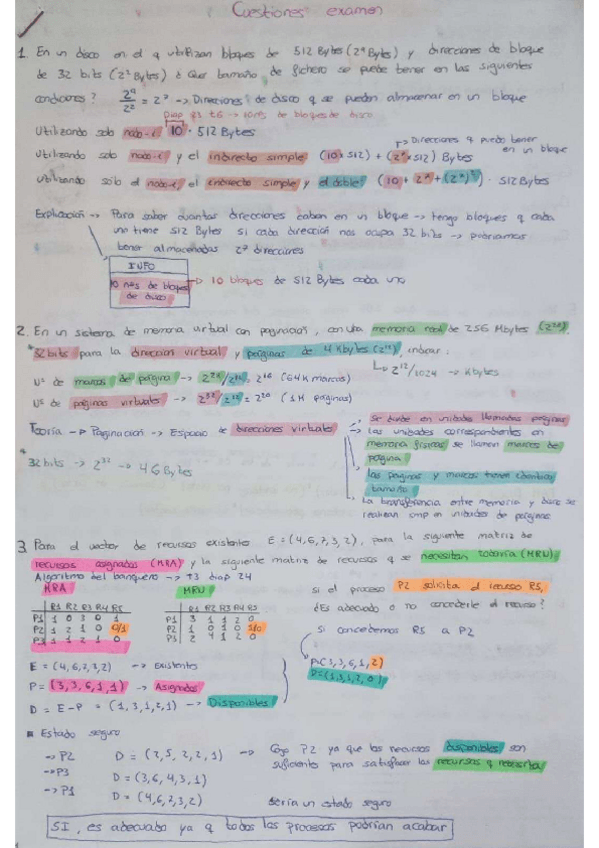 Cuestiones examen
1. En un disco en el q utilizan bloques de 512 Bytes (2⁹ Bytes) y direcciones de bloque
de 32 bits (2² Bytes) ¿ Que tamaño de fichero se puede tener en las siguientes
condiciones? 2⁹/2² = 2⁷ -> Direcciones de disco q se pueden almacenar en un bloque
Diap 83 t6 -> 10 nºs de bloques de disco
Utilizando solo nodo-i 10 · 512 Bytes
-> Direcciones q puedo tener
en un bloque
Utilizando solo nodo-i y el indirecto simple (10 x 512) + (2⁷ x 512) Bytes
Utilizando solo el nodo-i, el indirecto simple y el doble (10 + 2⁷ + (2⁷)²) · 512 Bytes
Explicación -> Para saber cuantas direcciones caben en un bloque -> tengo bloques q cada
uno tiene 512 Bytes si cada direccion nos ocupa 32 bits -> podriamos
tener almacenadas 2⁷ direcciones
INFO
10 nºs de bloques
de disco
-> 10 bloques de 512 Bytes cada uno
2. En un sistema de memoria virtual con paginacion, con una memoria real de 256 Mbytes (2²⁸),
32 bits para la direccion virtual y paginas de 4 Kbytes (2¹²), indicar:
-> 2¹²/1024 -> Kbytes
Nº de marcos de pagina -> 2²⁸/2¹² = 2¹⁶ (64K marcos)
Nº de paginas virtuales -> 2³²/2¹² = 2²⁰ (1M paginas)
Teoría -> Paginacion -> Espacio de direcciones virtuales
-> Se divide en unidades llamadas paginas
-> Las unidades correspondientes en
memoria fisica se llaman marcos de
pagina
Las paginas y marcos tienen identico
tamaño
-> La transferencia entre memoria y disco se
realizan smp en unidades de paginas
32 bits -> 2³² -> 4 GBytes
3. Para el vector de recursos existentes E = (4,6,7,3,2), para la siguiente matriz de
recursos asignados (MRA) y la siguiente matriz de recursos q se necesitan todavia (MRN)
Algoritmo del banquero -> t3 diap 24
MRA
R1 R2 R3 R4 R5
P1 1 0 3 0 1
P2 1 2 1 0 0/1
P3 1 1 2 1 0
MRN
R1 R2 R3 R4 R5
P1 3 1 1 2 0
P2 1 0 1 0 1/0
P3 2 4 1 2 0
si el proceso P2 solicita el recurso R5,
¿Es adecuado o no concederle el recurso?
Si concedemos R5 a P2
E = (4,6,7,3,2) -> Existentes
P = (3,3,6,1,1) -> Asignados
D = E - P = (1,3,1,2,1) -> Disponibles
P = (3,3,6,1,2)
D = (1,3,1,2,0)
Estado seguro
-> P2 D = (2,5,2,2,1) -> Cojo P2 ya que los recursos disponibles son
suficientes para satisfacer los recursos q necesita
-> P3 D = (3,6,4,3,1)
-> P1 D = (4,6,7,3,2) Sería un estado seguro
SI, es adecuado ya q todos los procesos podrían acabar